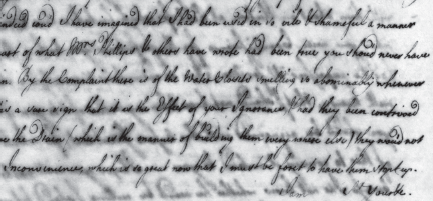 ended and I have imagined that I had been used in so vile & shameful a manner
part of what Mrs. Phillips & others have wrote had been true you should never have
in. By the Complaint there is of the Water Closets smelling so abominably whenever
is a sure sign that it is the Effect of your Ignorance, had they been contrived
the Drain (which is the manner of building them every where else) they would not
Inconvenience, which is so great now that I must be forst to have them stopt up.